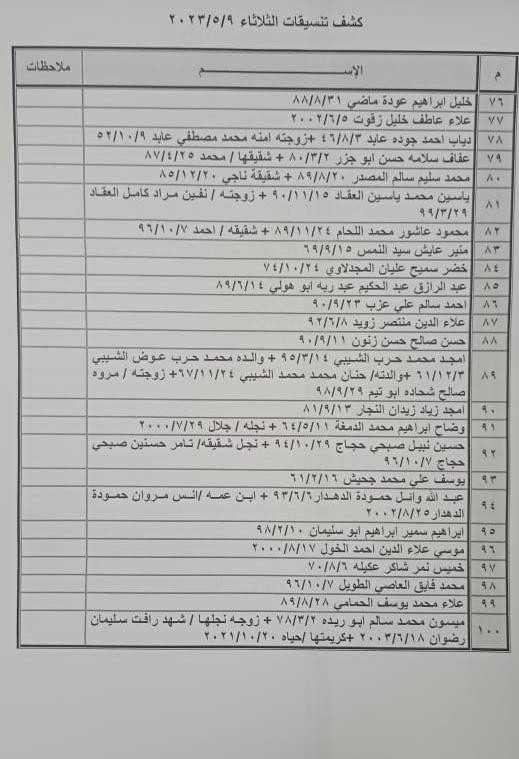 كشف تنسيقات الثلاثاء ٢٠٢٣/٥/٩
م الاســـم ملاحظات
٧٦ خليل ابراهيم عودة ماضي ٨٨/٨/٣١
٧٧ علاء عاطف خليل زقوت ٢٠٠٢/٦/٥
٧٨ دياب احمد جوده عابد ٤٦/٨/٣ +زوجته امنه محمد مصطفي عابد ٥٢/١٠/٩
٧٩ عفاف سلامه حسن ابو جزر ٨٠/٣/٢ + شقيقها / محمد ٨٧/٤/٢٥
٨٠ محمد سليم سالم المصدر ٨٩/٨/٢٠ + شقيقة ناجي ٨٥/١٢/٢٠
٨١ ياسين محمد ياسين العقاد ٩٠/١١/١٥ + زوجته / نفين مراد كامل العقاد
٩٩/٣/٢٩
٨٢ محمود عاشور محمد اللحام ٨٩/١١/٢٤ + شقيقه / احمد ٩٦/١٠/٧
٨٣ منير عايش سيد النمس ٦٩/٩/١٥
٨٤ خضر سميح عليان المجدلاوي ٧٤/١٠/٢٤
٨٥ عبد الرازق عبد الحكيم عبد ربه ابو هولي ٨٩/٦/١٤
٨٦ احمد سالم علي عزب ٩٠/٩/٢٣
٨٧ علاء الدين منتصر زويد ٩٢/٦/٨
٨٨ حسن صالح حسن زنون ٩٠/٩/١١
٨٩ امجد محمد حرب الشيبي ٩٥/٣/١٤ + والده محمد حرب عوض الشيبي
٦١/١٢/٣ +والدته/ حنان محمد محمد الشيبي ٦٧/١١/٢٤+ زوجته / مروه
صالح شحاده ابو تيم ٩٨/٩/٢٩
٩٠ امجد زياد زيدان النجار ٨١/٩/١٣
٩١ وضاح ابراهيم محمد الدمغة ٦٤/٥/١١ + نجله / جلال ٢٠٠٠/٧/٢٩
٩٢ حسين نبيل صبحي حجاج ٩٤/١٠/٢٩ + نجل شقيقه/ تامر حسنين صبحي
حجاج ٩٦/١٠/٧
٩٣ يوسف علي محمد جحيش ٦١/٢/١٦
٩٤ عبد الله وائل حمودة الدهدار٩٣/٦/٦ + ابن عمه /انس مروان حمودة
الدهدار٢٠٠٢/٨/٢٥
٩٥ ابراهيم سمير ابراهيم ابو سليمان ٩٨/٢/١٠
٩٦ موسي علاء الدين احمد الخول ٢٠٠٠/٨/١٧
٩٧ خميس نمر شاكر عكيله ٧٠/٨/٦
٩٨ محمد فايق العاصي الطويل ٩٦/١٠/٧
٩٩ علاء محمد يوسف الحمامي ٨٩/٨/٢٨
١٠٠ ميسون محمد سالم ابو ريده ٧٨/٣/٢ + زوجه نجلها / شهد رافت سليمان
رضوان ٢٠٠٣/٦/١٨ +كريمتها /حياه ٢٠٢١/١٠/٢٠